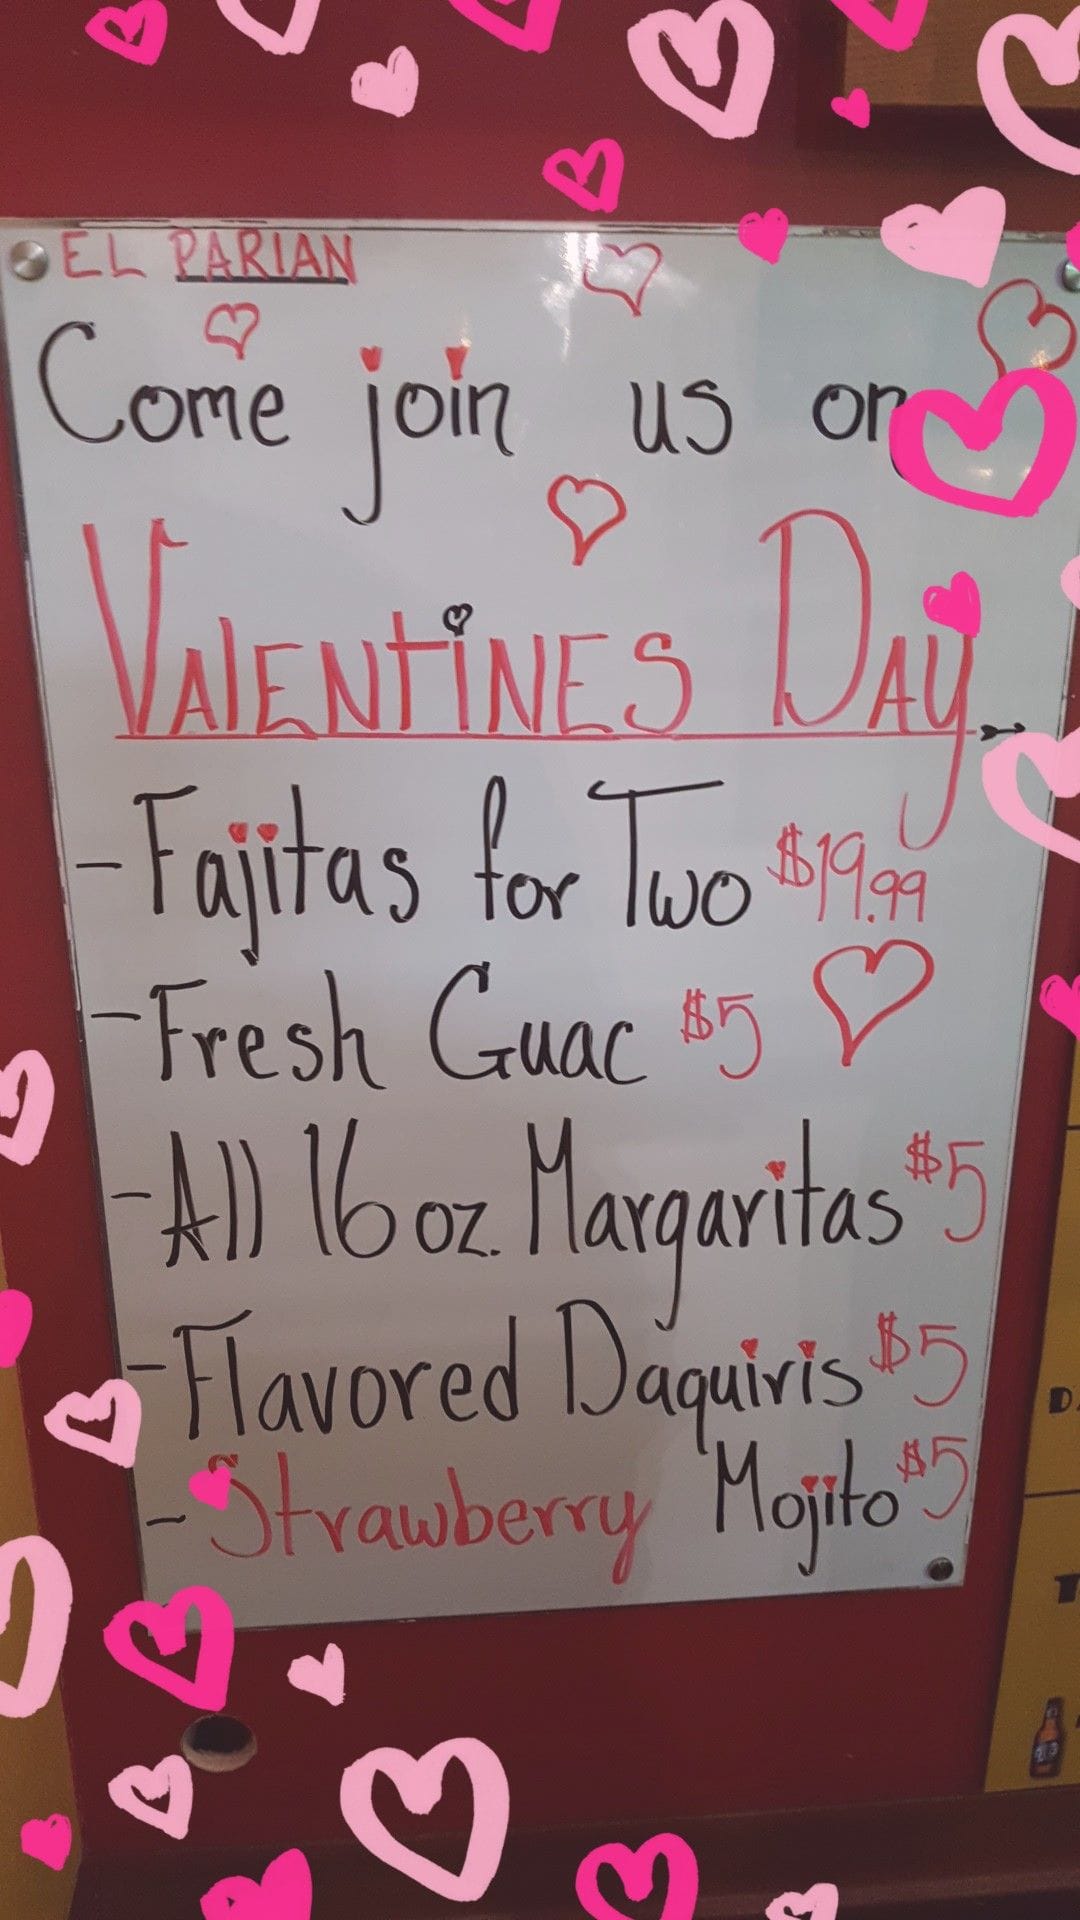 EL PARIAN
Come join us on
VALENTINES DAY
- Fajitas for Two $19.99
- Fresh Guac $5
- All 16 oz. Margaritas $5
- Flavored Daquiris $5
- Strawberry Mojito $5